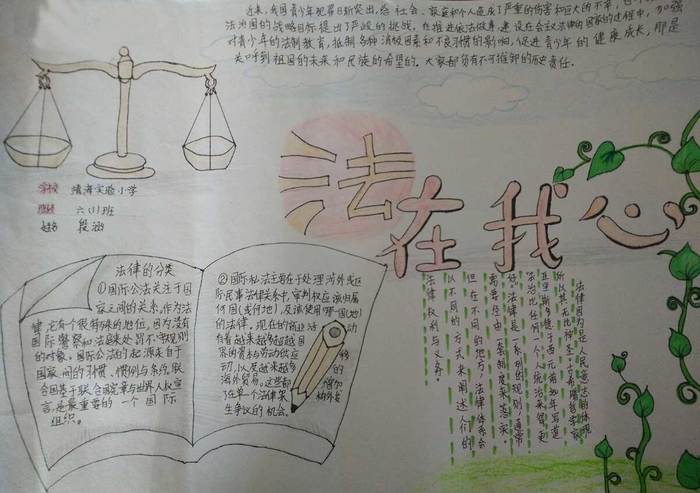 近来，我国青少年犯罪日渐突出，给社会、家庭和个人造成了严重的伤害和巨大的不幸，也
法治国的战略目标提出了严峻的挑战，在推进依法治国，建设社会主义法律的国家的过程中，加强
对青少年的法制教育，抵制各种消极因素和不良习惯的影响，促进青少年的健康成长，那是
关呼到祖国的未来和民族的希望的。大家都负有不可推卸的历史责任。
法在我心
学校 靖海实验小学
班级 六(1)班
姓名 段涵
法律的分类
①国际公法关注于国
家之间的关系，作为法
律，它有个很特殊的地位，因为没有
国际警察和法庭来处罚不守规则
的对象。国际公法的起源来自于
国家间的习惯、惯例与条约，联
合国基于联合国宪章与世界人权宣
言，是最重要的一个国际
组织。
②国际私法主要在于处理海外或区
际民事法律关系中，审判权应该归属
何国(或何地)，及该使用哪一国(地)
的法律。现在的商业活动
有着越来越多超越国
界的资本与劳动供应
动，以及越来越多的
海外贸易。这些都增加
了在单个法律架构外发
生争议的机会。
法律因为是人民意志的体现
所以其无比神圣。古希腊哲学家
亚里斯多德于西元前三百年写道
法治比任何一个人统治来得更
好。法律是一系列的规则，通常
需要经由一套制度来落实。
但在不同的地方，法律体系会
以不同的方式来阐述人们的
法律权利与义务。